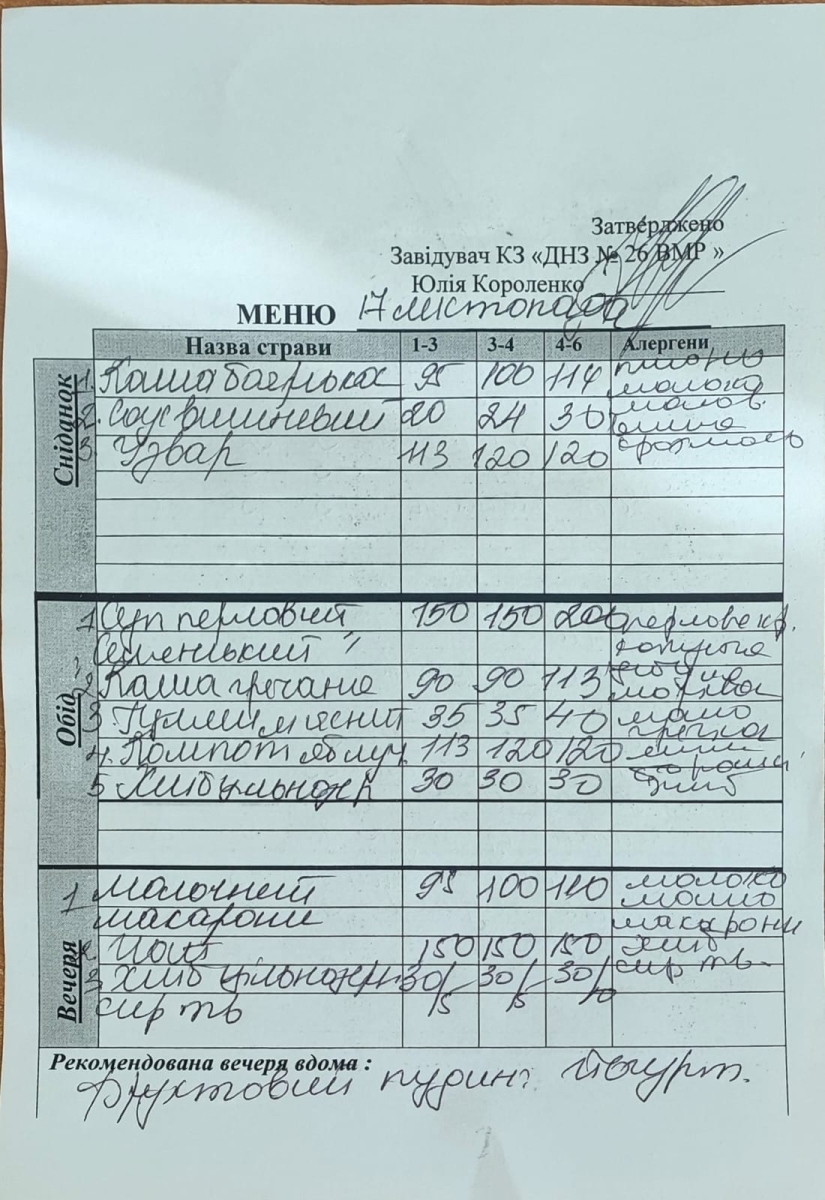 Затверджено
Завідувач КЗ «ДНЗ № 26 ВМР »
Юлія Короленко
МЕНЮ 17 листопада
Назва страви 1-3 3-4 4-6 Алергени
Сніданок
1. Каша боярська 95 100 114 пшоно
молоко
2. Соус вишневий 20 24 30
вишня
3. Узвар 113 120 120
Обід
1 Суп перловий 150 150 200 перлове кр.
Селенький " картопля
2 Каша гречана 90 90 113 морква
3. м'ясний 35 35 40 масло
гречка
4. Компот яблуч 113 120 120
5. Хліб цільнозер 30 30 30 хліб
Вечеря
1 Молочний 95 100 110 молоко
масло
макарони макарони
2. Чай 150 150 150 хліб
3. Хліб цільнозерн. 30/5 30/5 30/10 сир тв.
сир тв
Рекомендована вечеря вдома :
Фруктовий пудинг. Йогурт.